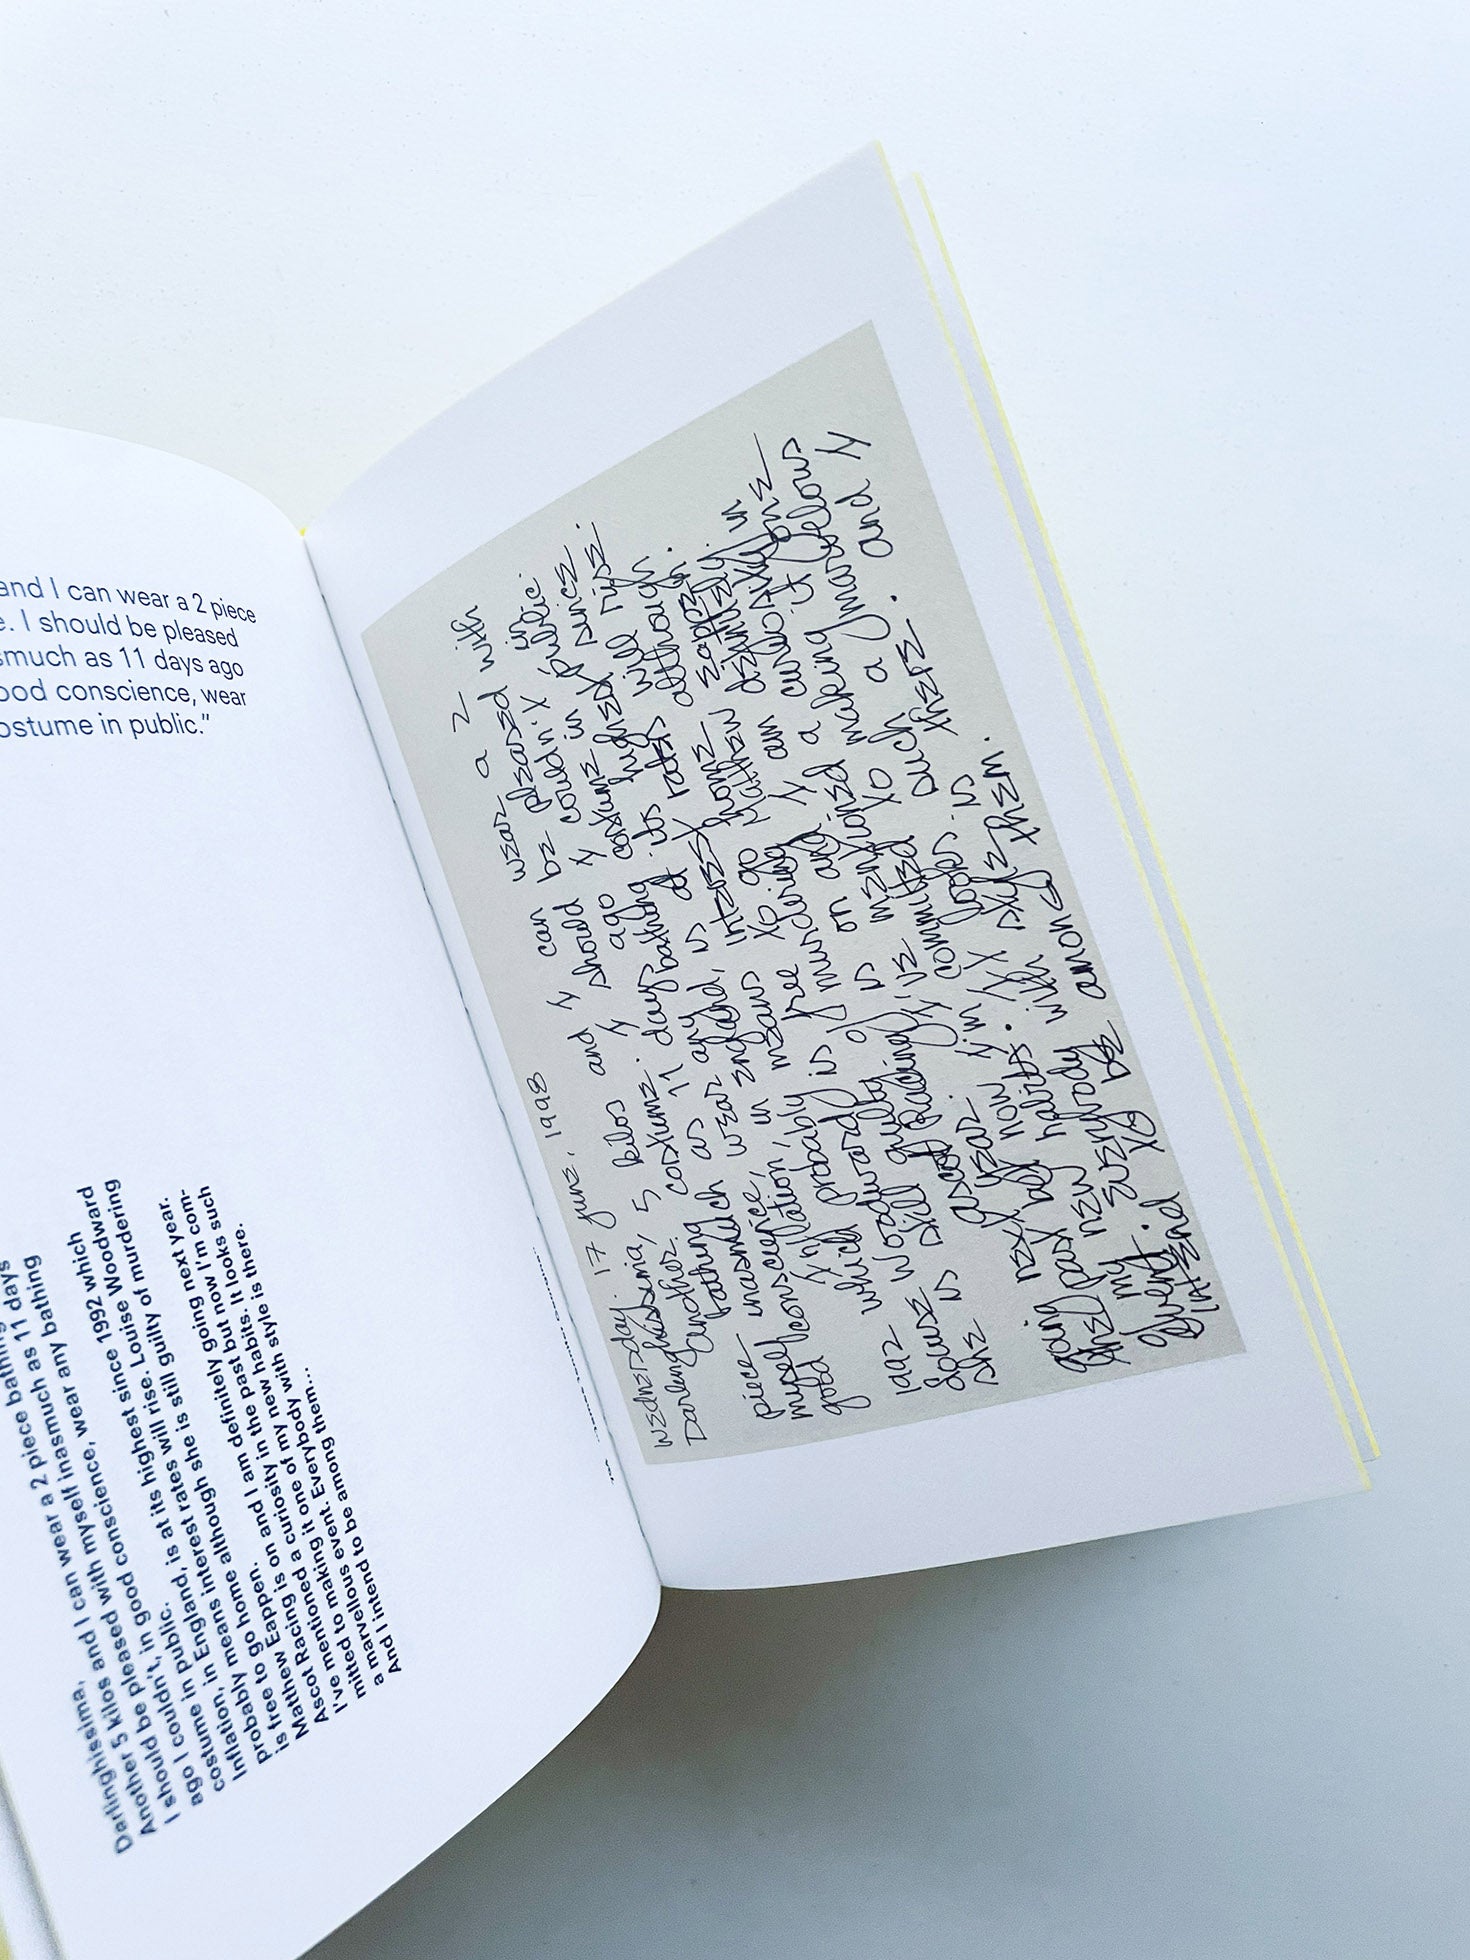 and I can wear a 2 piece
e. I should be pleased
smuch as 11 days ago
ood conscience, wear
ostume in public."
Darlinghissima,
Another 5 kilos and I can wear a 2 piece bathing
I should be pleased with myself inasmuch as 11 days
ago I couldn't, in good conscience, wear any bathing
costume in public.
Inflation, in England, is at its highest since 1992 which
probably means interest rates will rise. Louise Woodward
is free to go home although she is still guilty of murdering
Matthew Eappen.
Ascot Racing is on and I am definitely going next year.
I've mentioned a curiosity in the past but now I'm com-
mitted to making it one of my new habits. It looks such
a marvellous event. Everybody with style is there.
And I intend to be among them...
Wednesday. 17 June, 1998
Darlinghissima,
Another 5 kilos and I can wear a 2
piece bathing costume. I should be pleased with
myself inasmuch as 11 days ago I couldn't in
good conscience, wear any bathing costume in public.
Inflation, in England, is at its highest since
1992 which probably means interest rates will rise.
Louise Woodward is free to go home although
she is still guilty of murdering Matthew Eappen.
Ascot Racing is on and I am definitely
going next year. I've mentioned a curiosity in
the past but now I'm committed to making it one
of my new habits. It looks such a marvellous
event. Everybody with style is there. and I
intend to be among them.